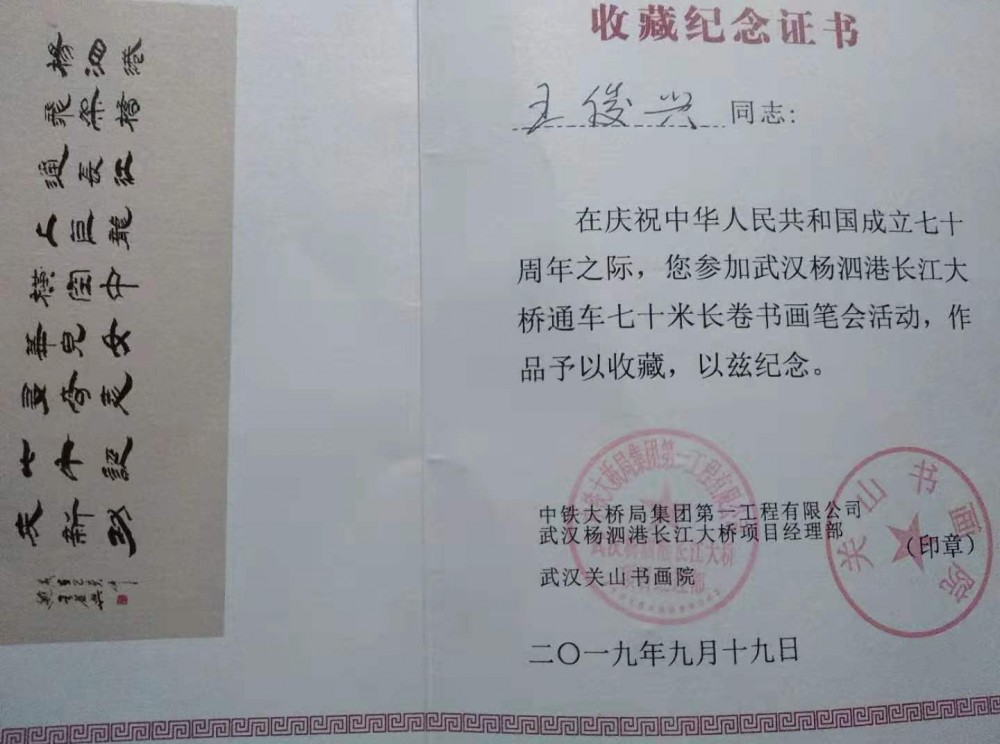 楊泗港
飛架橋
通長江
上巨龍
橫空中
華兒女
奇表
七十
新
收藏纪念证书
王俊兴同志：
在庆祝中华人民共和国成立七十
周年之际，您参加武汉杨泗港长江大
桥通车七十米长卷书画笔会活动，作
品予以收藏，以兹纪念。
中铁大桥局集团第一工程有限公司
武汉杨泗港长江大桥项目经理部
（印章）
武汉关山书画院
二〇一九年九月十九日
铁大桥局集团第一工程有限
长江大桥
关山书画院